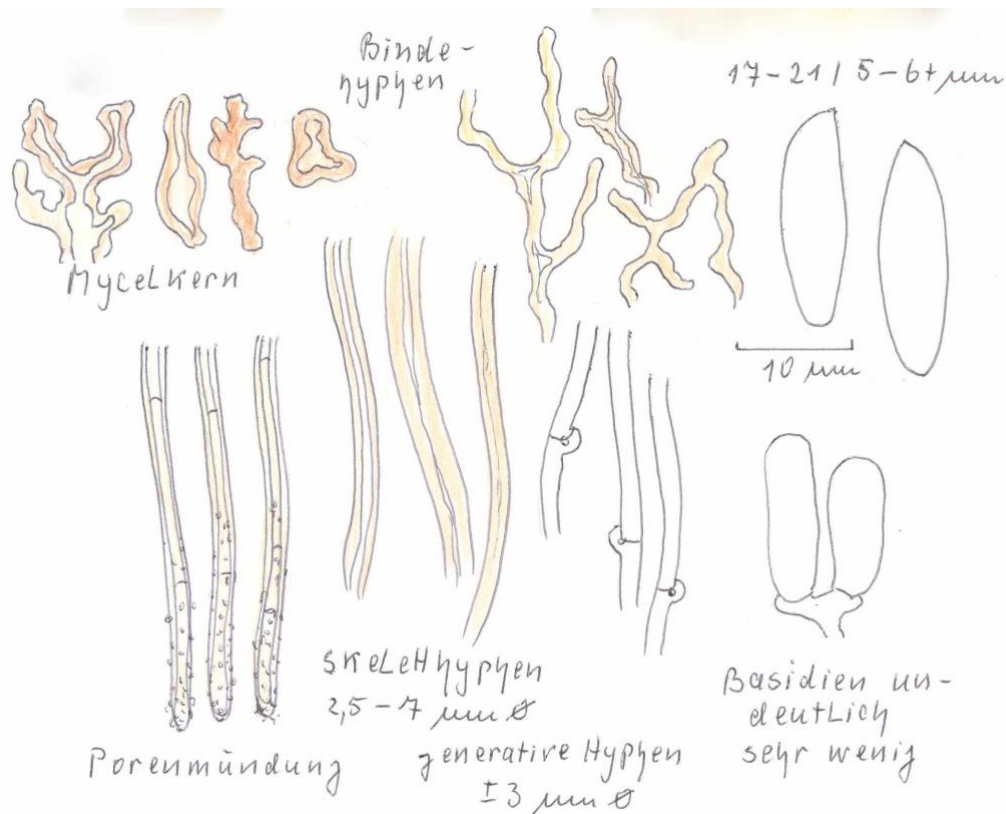 Binde-
hyphen
17-21 / 5-6+ µm
Mycelkern
10 µm
Skeletthyphen
2,5-7 µm Ø
Porenmündung
generative Hyphen
±3 µm Ø
Basidien un-
deutlich
sehr wenig